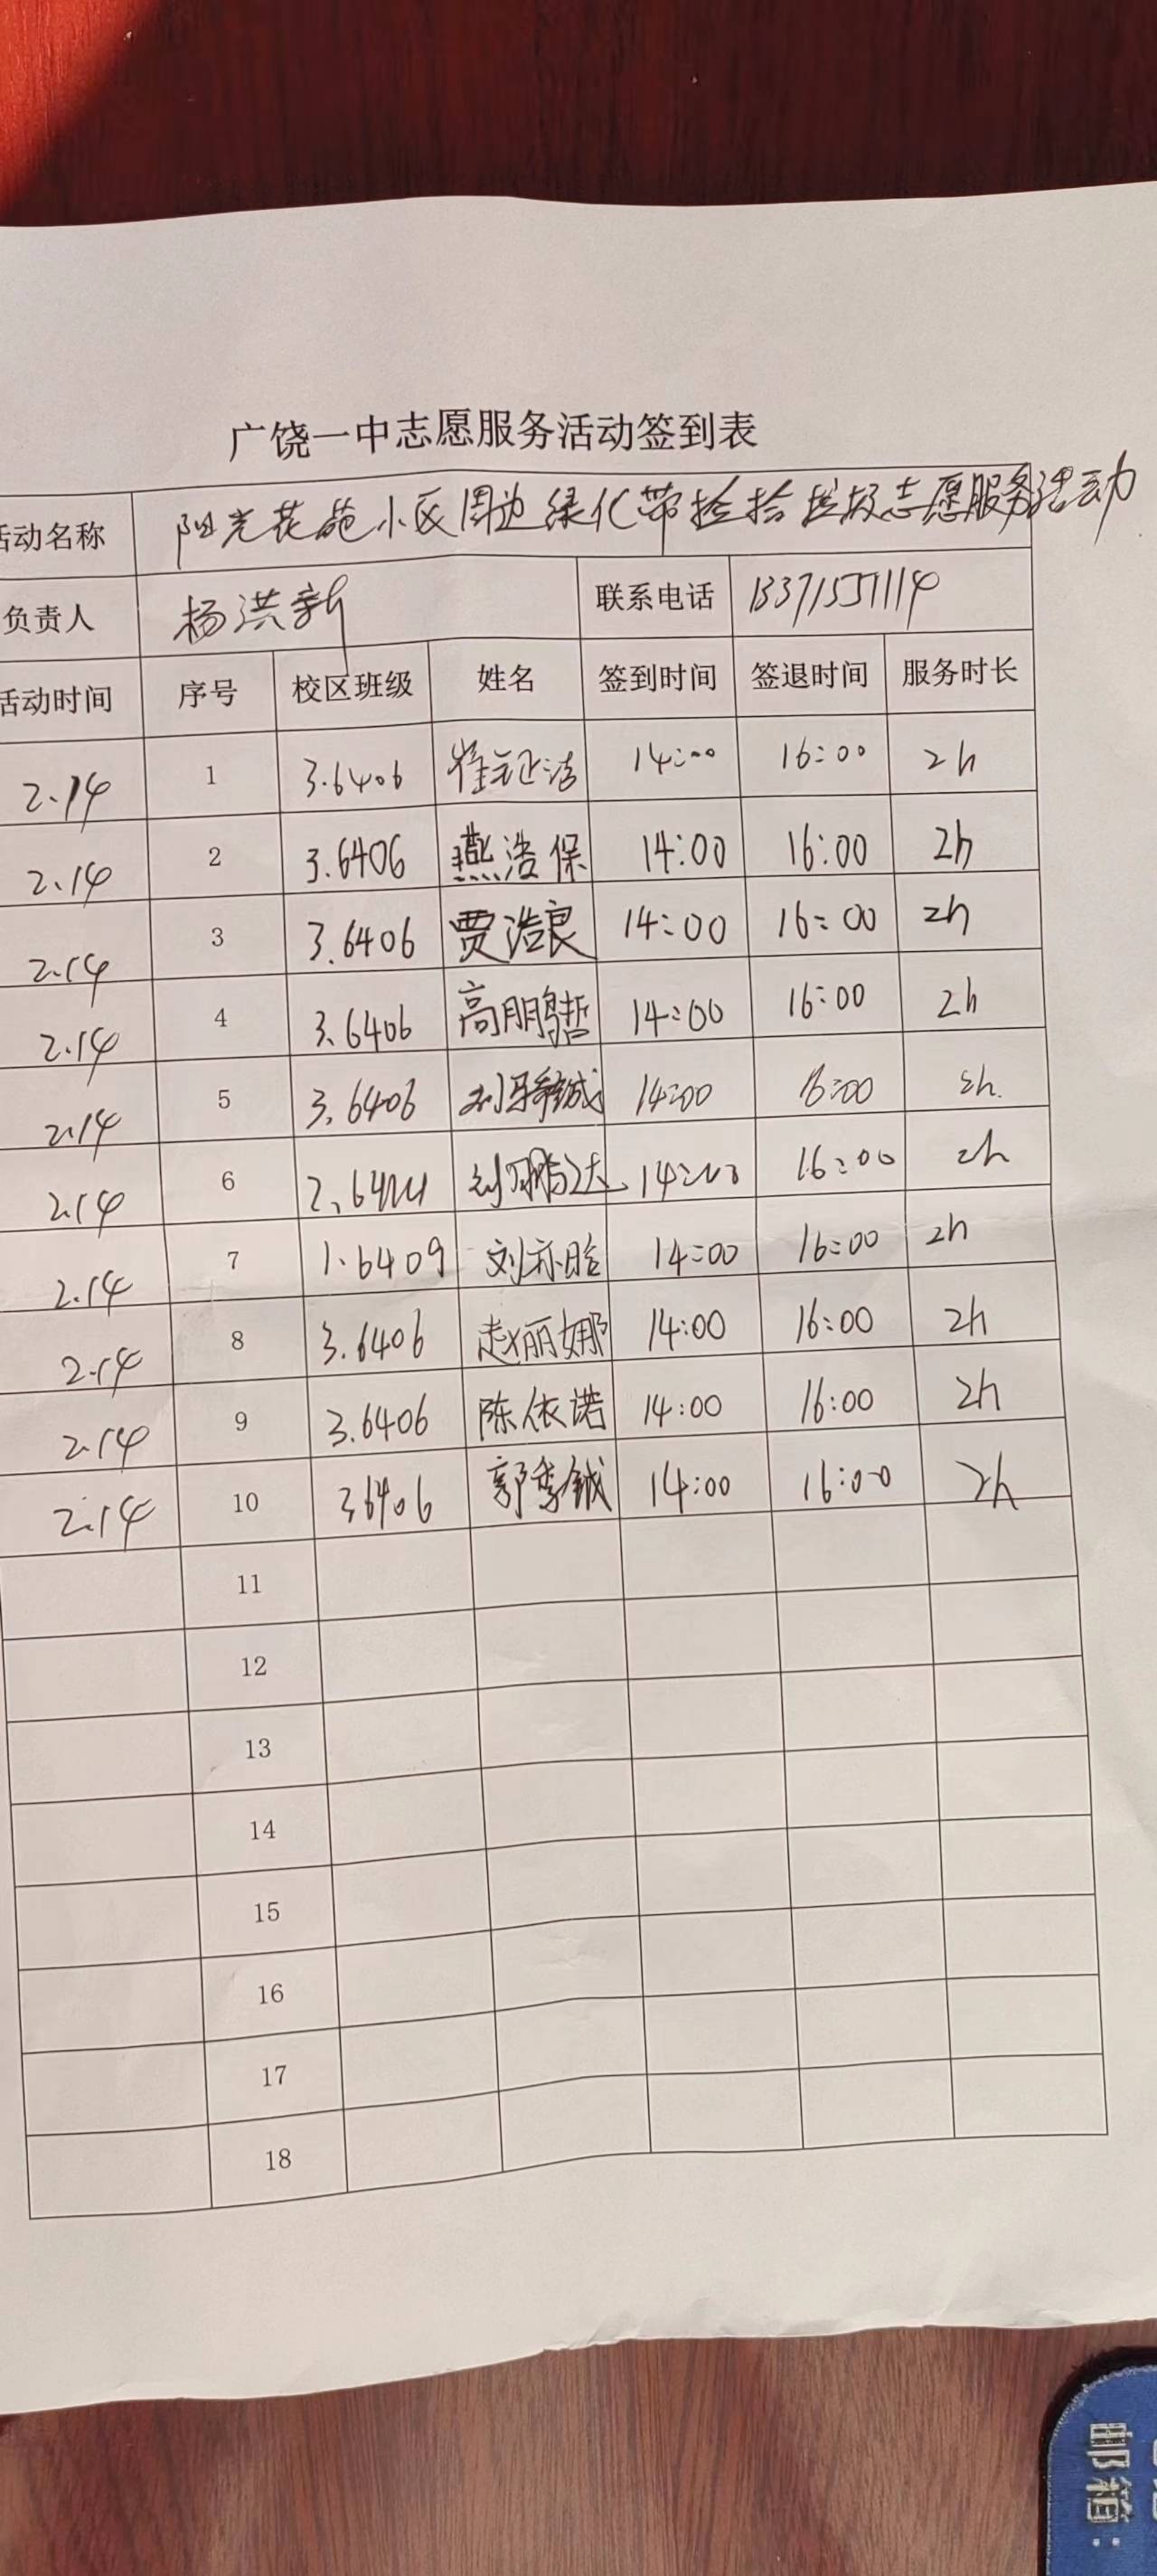 广饶一中志愿服务活动签到表
活动名称 阳光花苑小区周边绿化带捡拾垃圾志愿服务活动
负责人 杨洪新 联系电话
活动时间 序号 校区班级 姓名 签到时间 签退时间 服务时长
2.14 1 3.6406 14:00 16:00 2h
2.14 2 3.6406 燕浩保 14:00 16:00 2h
2.14 3 3.6406 贾浩良 14:00 16:00 2h
2.14 4 3.6406 高鹏哲 14:00 16:00 2h
2.14 5 3.6406 14:00 16:00 2h
2.14 6 14:00 16:00 2h
2.14 7 1.6409 14:00 16:00 2h
2.14 8 3.6406 赵丽娜 14:00 16:00 2h
2.14 9 3.6406 陈依诺 14:00 16:00 2h
2.14 10 3.6406 郭季铖 14:00 16:00 2h
11
12
13
14
15
16
17
18
邮箱：